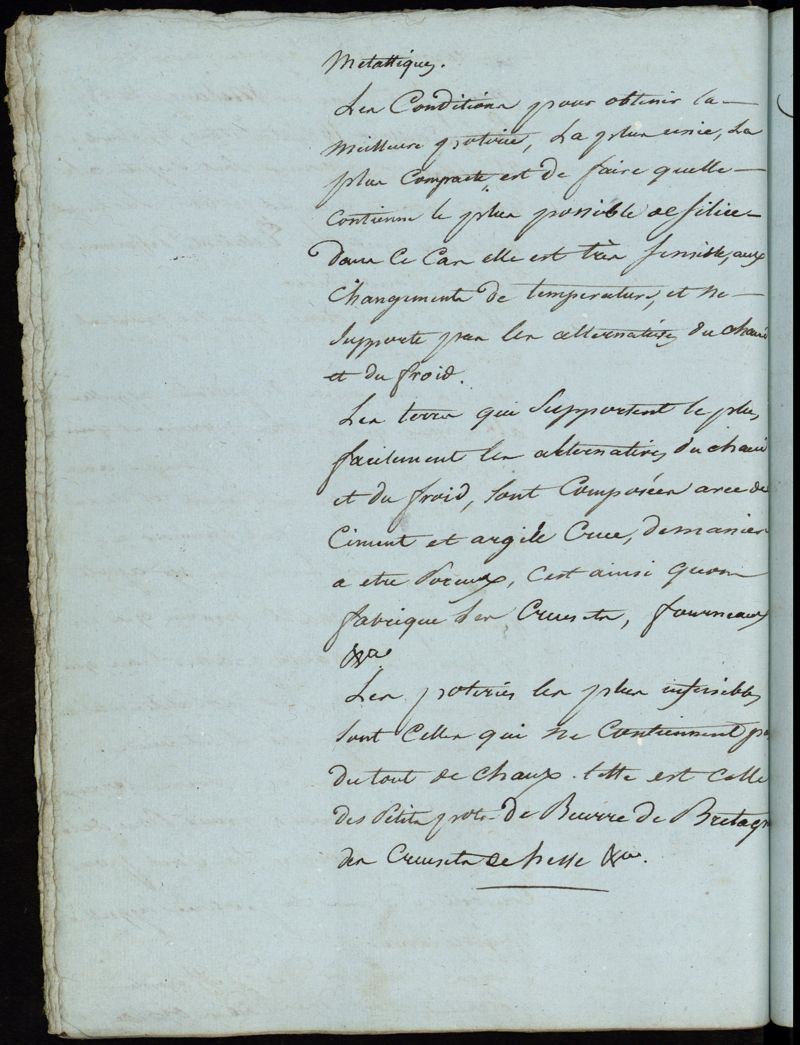 Metalliques.
Les Conditions pour obtenir la
meilleure poterie, la plus unie, la
plus compacte est de faire quelle
contienne le plus possible de silice
dans ce cas elle est très sensible, aux
Changements de temperature, et ne
supporte pas les alternatives du chaud
et du froid.
Les terres qui supportent le plus
facilement les alternatives du chaud
et du froid, sont Composées avec du
Ciment et argile Crue, de manier
a etre Poreux, c'est ainsi quon
fabrique les Creusets, fourneaux
&ca
Les poteries les plus infusibles
sont Celles qui ne Contiennent pas
du tout de chaux. telle est celle
des Petits pots de Beurre de Bretagn
des Creusets de hesse &ca.